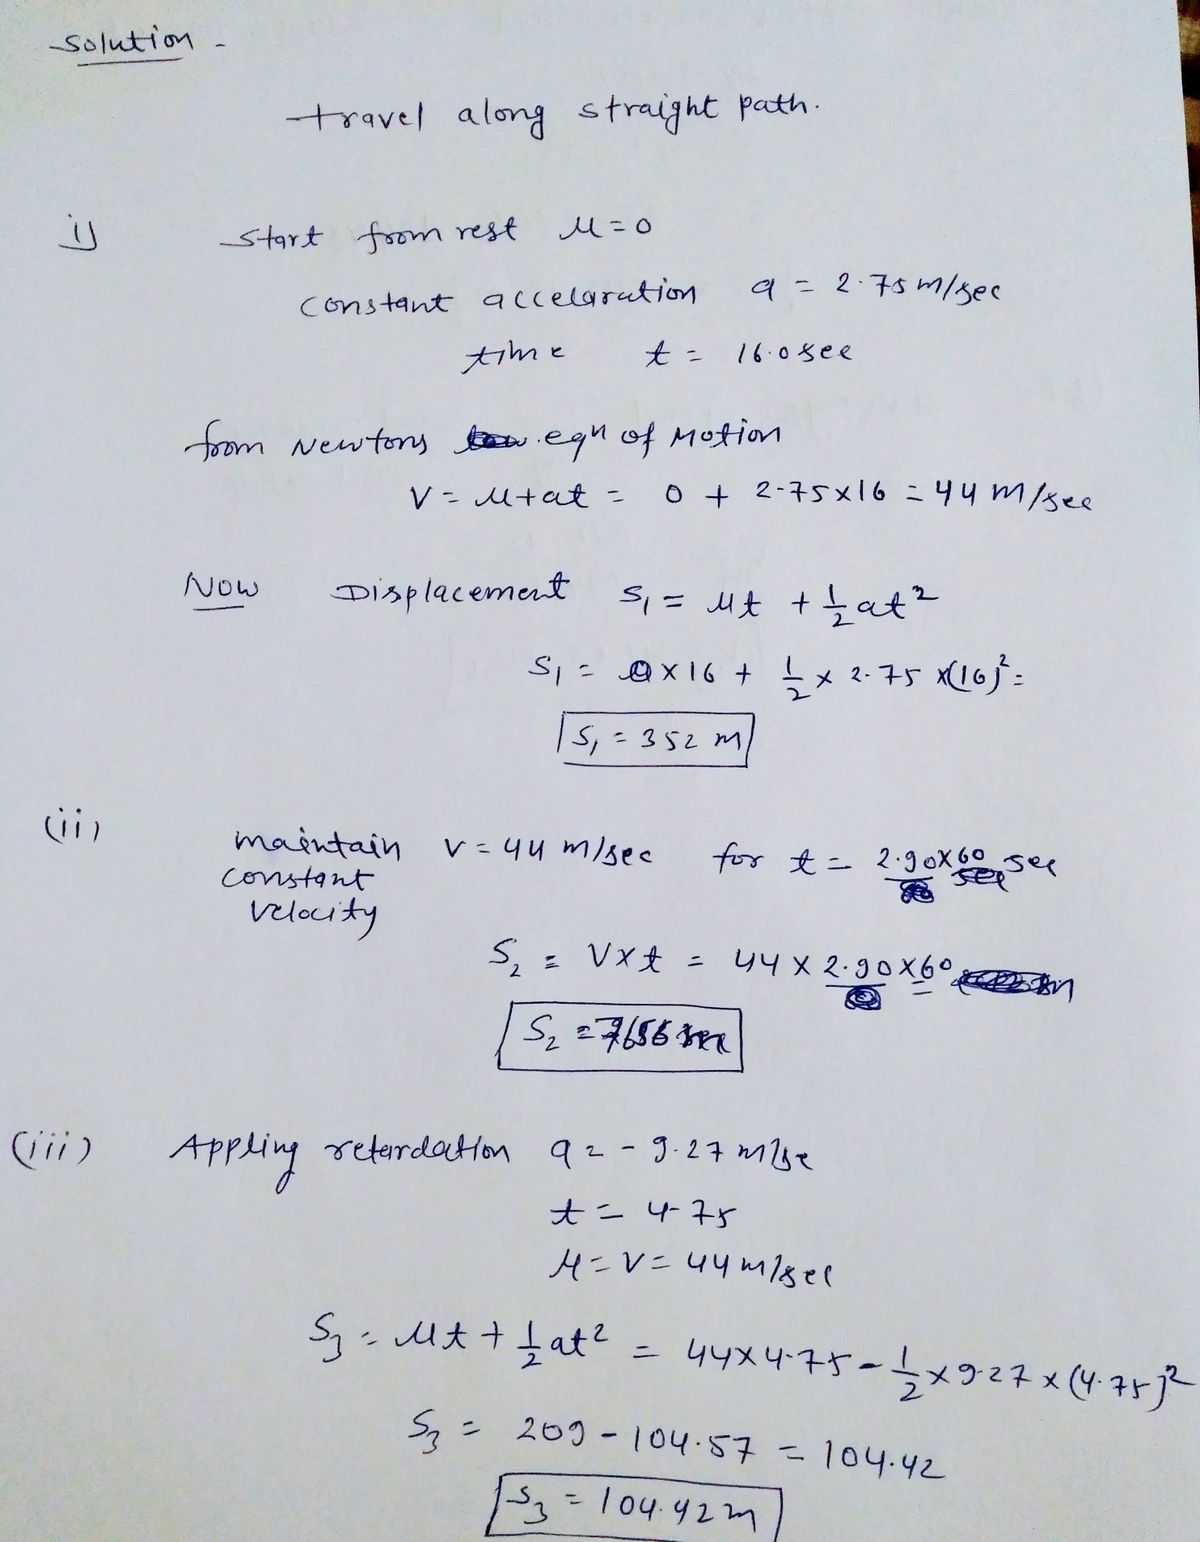 Solution -
travel along straight path.
i) Start from rest u = 0
constant accelaration a = 2.75 m/sec
time t = 16.0 sec
from Newtons eqn of Motion
V = u+at = 0 + 2.75x16 = 44 m/sec
Now Displacement S1 = ut + 1/2 at²
S1 = 0 x 16 + 1/2 x 2.75 x(16)² =
S1 = 352 m
(ii) maintain v = 44 m/sec for t = 2.90x60 sec
constant
velocity
S2 = Vxt = 44 x 2.90 x 60
S2 = 7656
(iii) Appling retardation a = - 9.27 m/se
t = 4.75
u = v = 44 m/sec
S3 = ut + 1/2 at² = 44x4.75 - 1/2 x 9.27 x (4.75)²
S3 = 209 - 104.57 = 104.42
S3 = 104.42 m